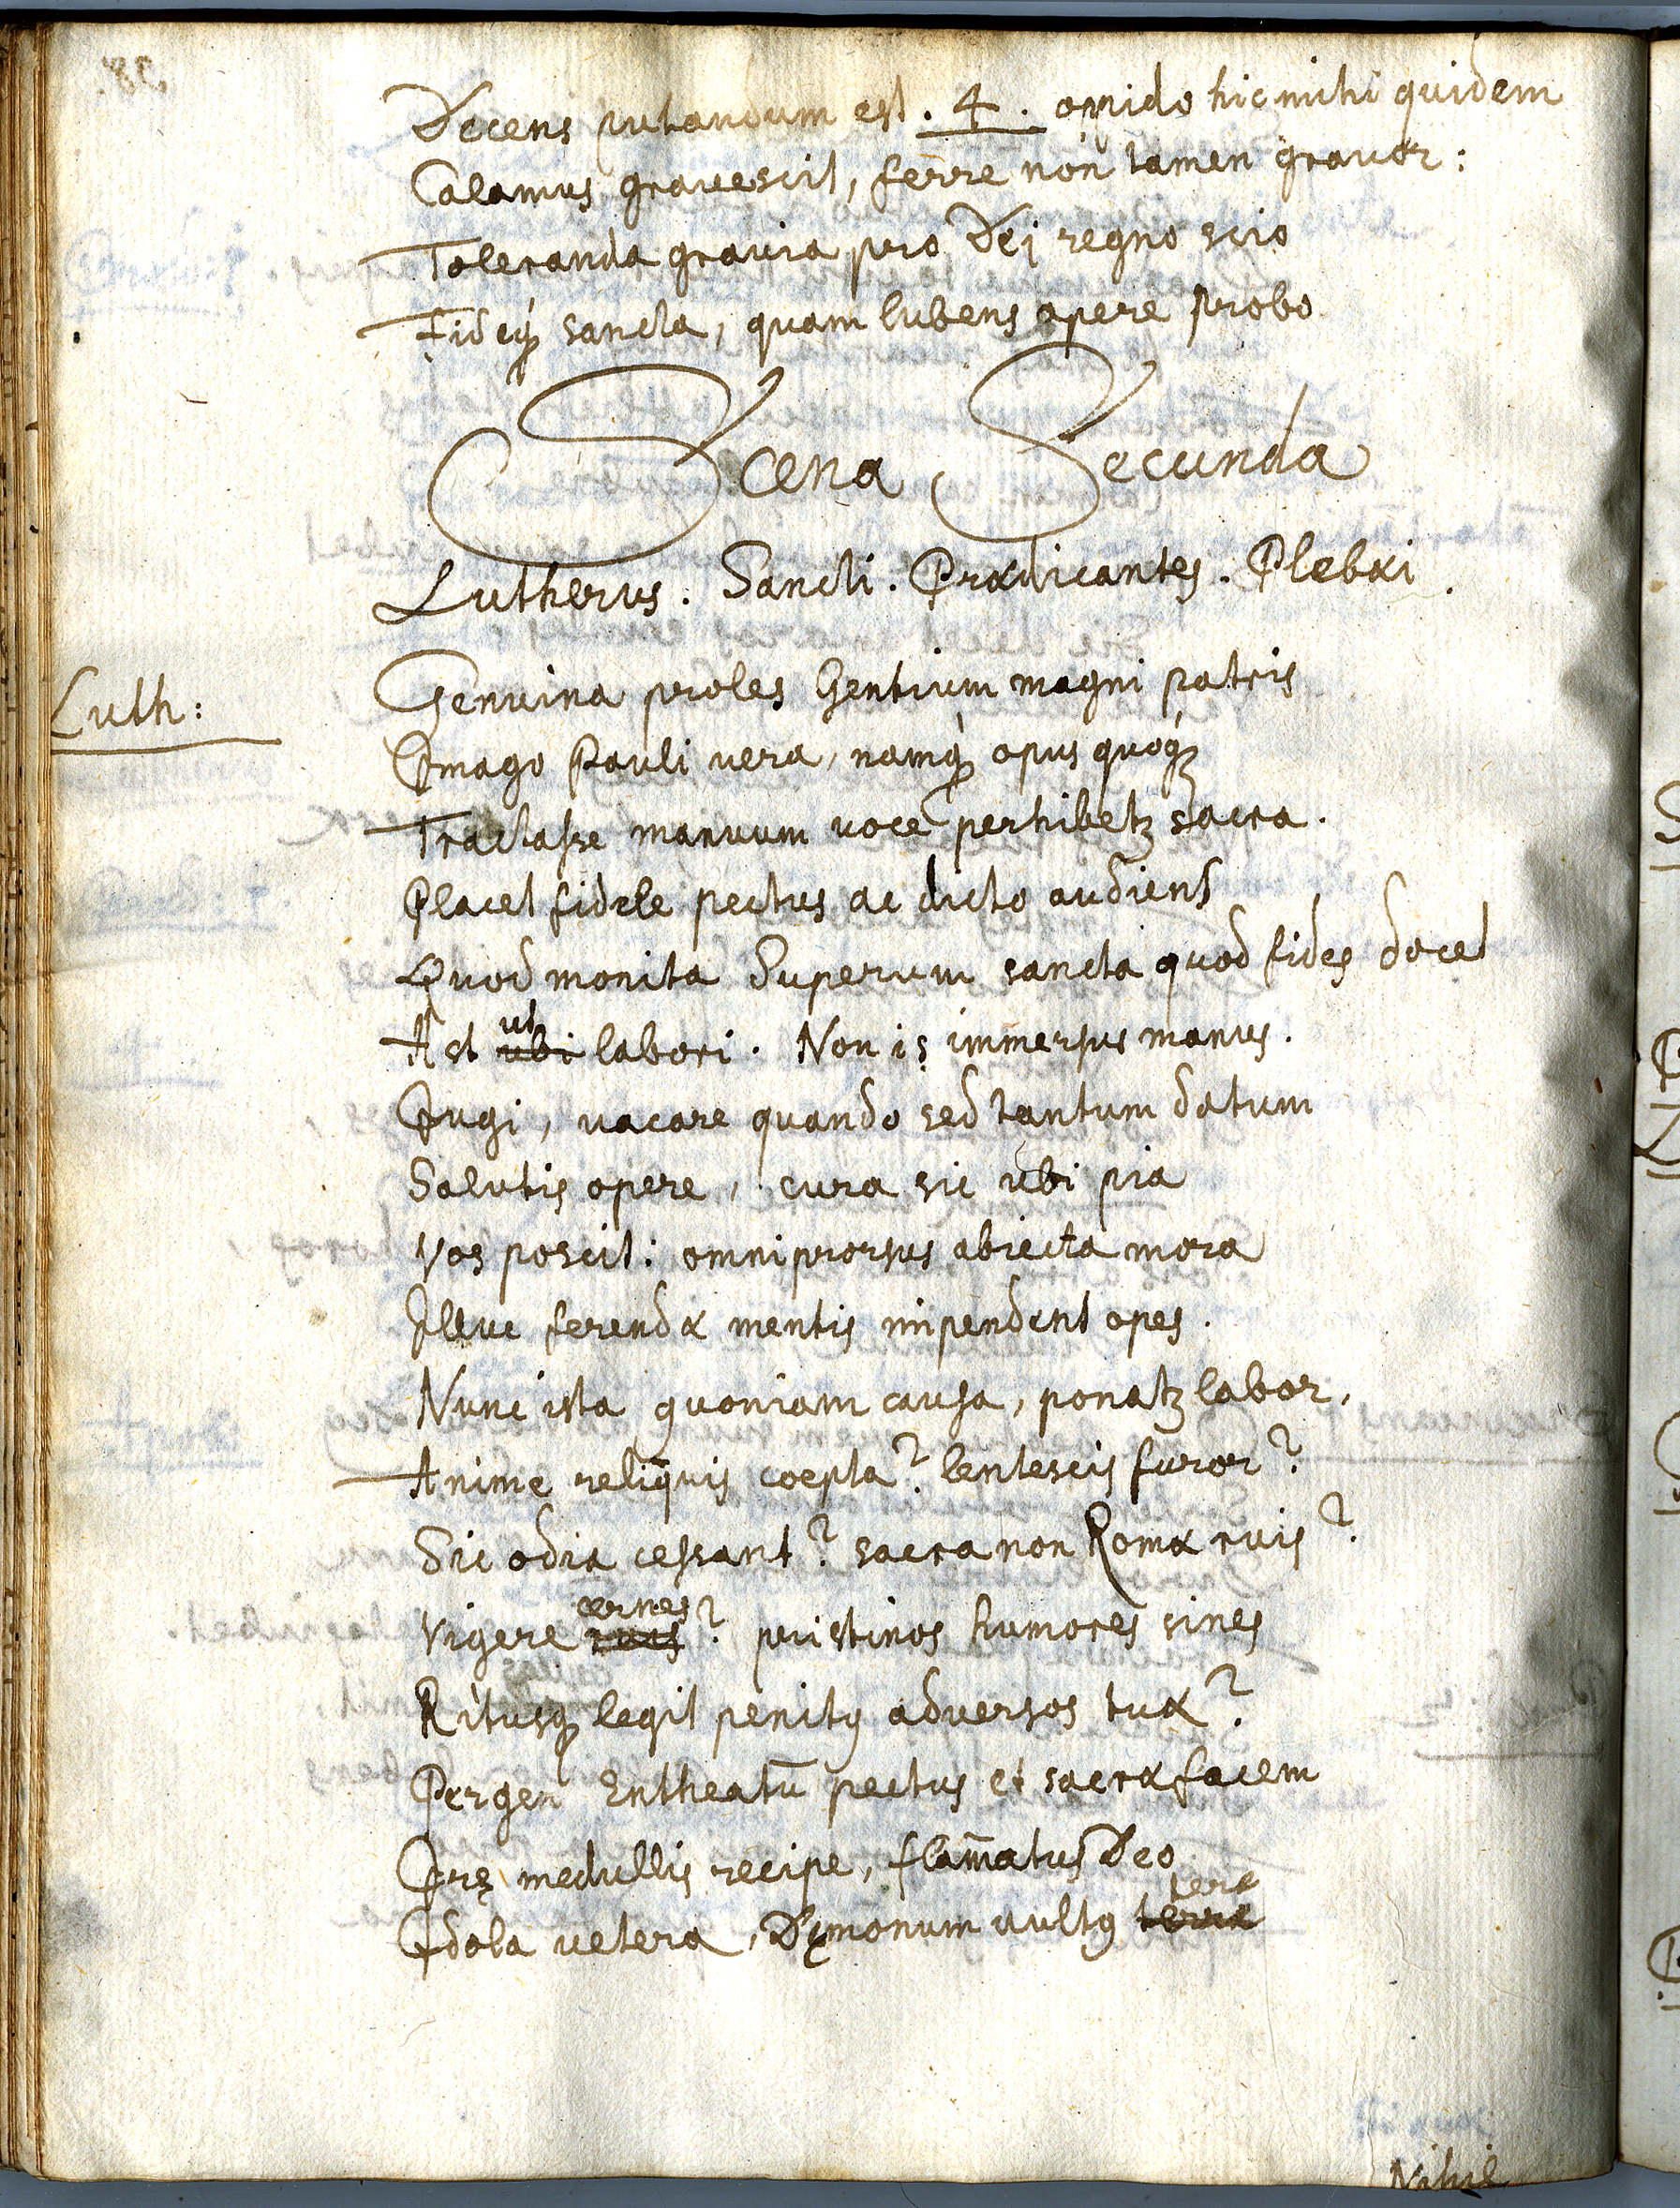 Decens putandum est . 4 . omido hic mihi quidem
Calamus grauescit, ferre non tamen grauor:
Toleranda grauia pro Dei regno scio
Fideq́ꝫ sancta, quam lubens opere probo
Scena Secunda
Lutherus. Sancti. Prædicantes. Plebæi.
Luth: Genuina proles Gentium magni patris
Imago Pauli uera, namq́ꝫ opus quoq́ꝫ
Tractasse manuum uoce perhibetꝫ sacra.
Placet fidele pectus ac dicto audiens
Quod monita Superum sancta quod fides docet
Ast ut labori. Non is immersus manus.
Iugi, uacare quando sed tantum datum
Salutis opere, cura sic ubi pia
Vos poscit: omni prorsus abiecta mora
Illuc ferendæ mentis impendent opes.
Nunc ista quoniam causa, ponatꝫ labor,
Anime reliquis coepta? lentescis furor?
Sic odia cessant? sacra non Romæ ruis?
Vigere cernes? pristinos humores sines
Ritusqꝫ legit penitꝰ aduersos tuæ?
Pergen Entheatū pectus et sacræ facem
Iræ medullis recipe, flam̄atus Deo
Idola uetera, Dęmonum uultꝰ tere
Nihil